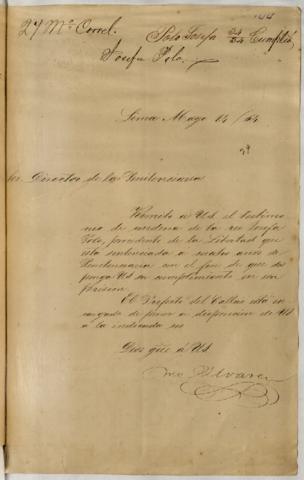 27 Mo Correl.
Polo Josefa 24/84 Cumplió
Josefa Polo.
Lima Mayo 14/84
Sor. Director de la Penitenciaria
Remito á Ud. el testimo
nio de condena de la reo Josefa
Polo, procedente de la Libertad que
está sentenciada á cuatro años de
Penitenciaria con el fin de que dis
ponga Ud su cumplimiento en su
prision.
El Prefeto del Callao está en
cargado de poner á disposicion de Ud
á la indicada reo
Dios gue á Ud.
Alvarez